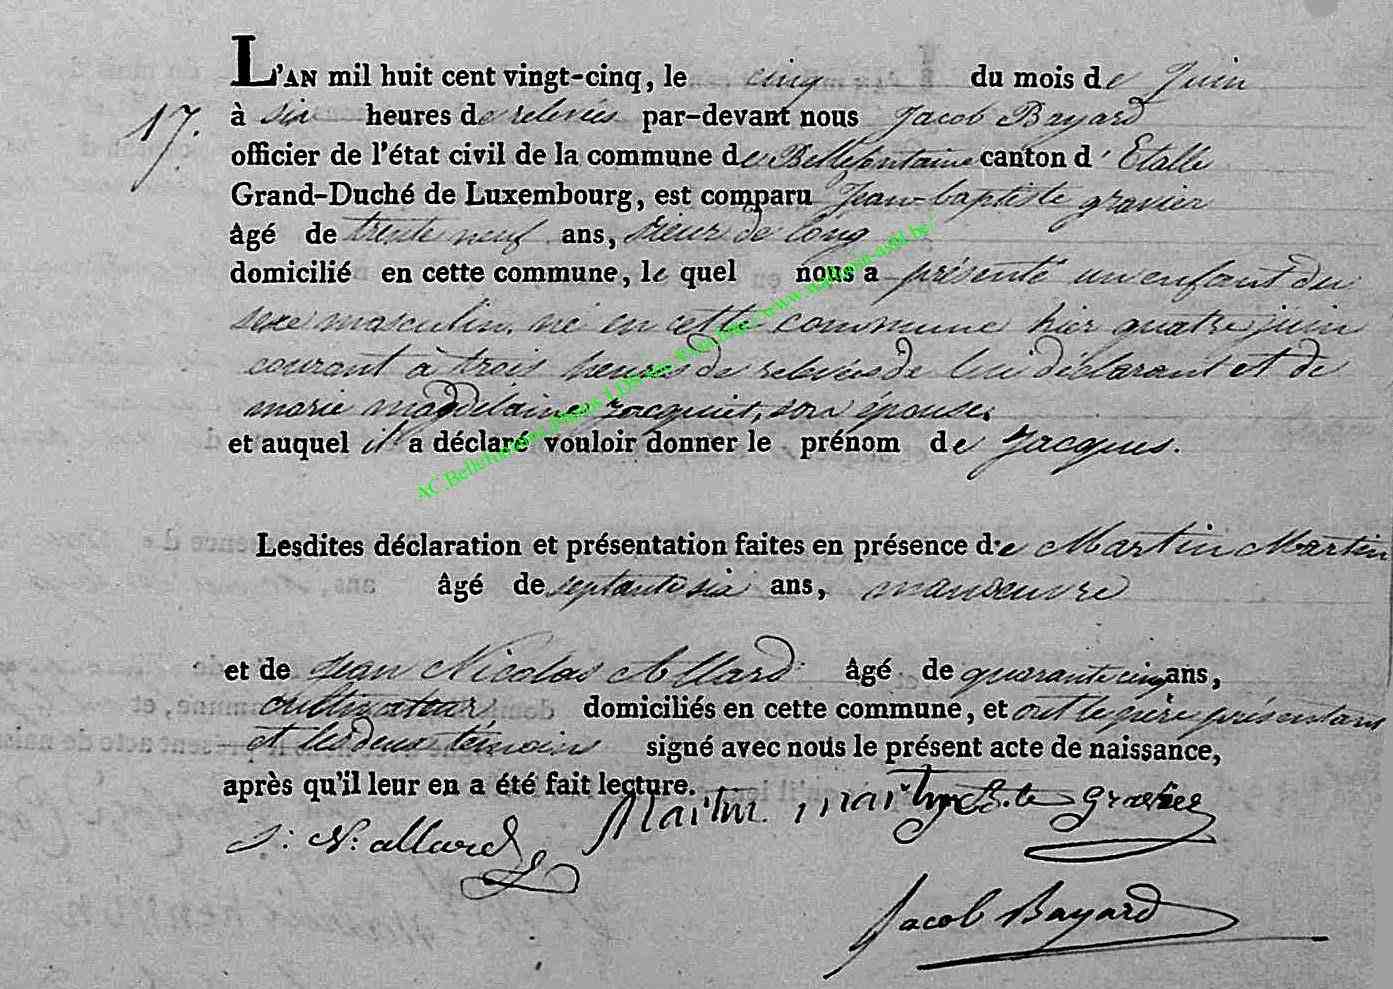 L'AN mil huit cent vingt-cinq, le cinq du mois de Juin
17. à six heures de relevées par-devant nous Jacob Bayard
officier de l'état civil de la commune de Bellefontaine canton d'Etalle
Grand-Duché de Luxembourg, est comparu Jean-baptiste gravier
âgé de trente neuf ans, sieur de long
domicilié en cette commune, le quel nous a présenté un enfant du
sexe masculin, né en cette commune hier quatre juin
courant à trois heures de relevées de lui déclarant et de
marie magdelaine Jacquet, son épouse.
et auquel il a déclaré vouloir donner le prénom de Jacques.
AC Bellefontaine
Lesdites déclaration et présentation faites en présence de Martin Martin
âgé de septante six ans, manoeuvre
et de Jean Nicolas Allard âgé de quarante cinq ans,
cultivateurs domiciliés en cette commune, et ont le père présentant
et les deux témoins signé avec nous le présent acte de naissance,
après qu'il leur en a été fait lecture.
Martin martin J B.te Gravier
J: N: allard
Jacob Bayard